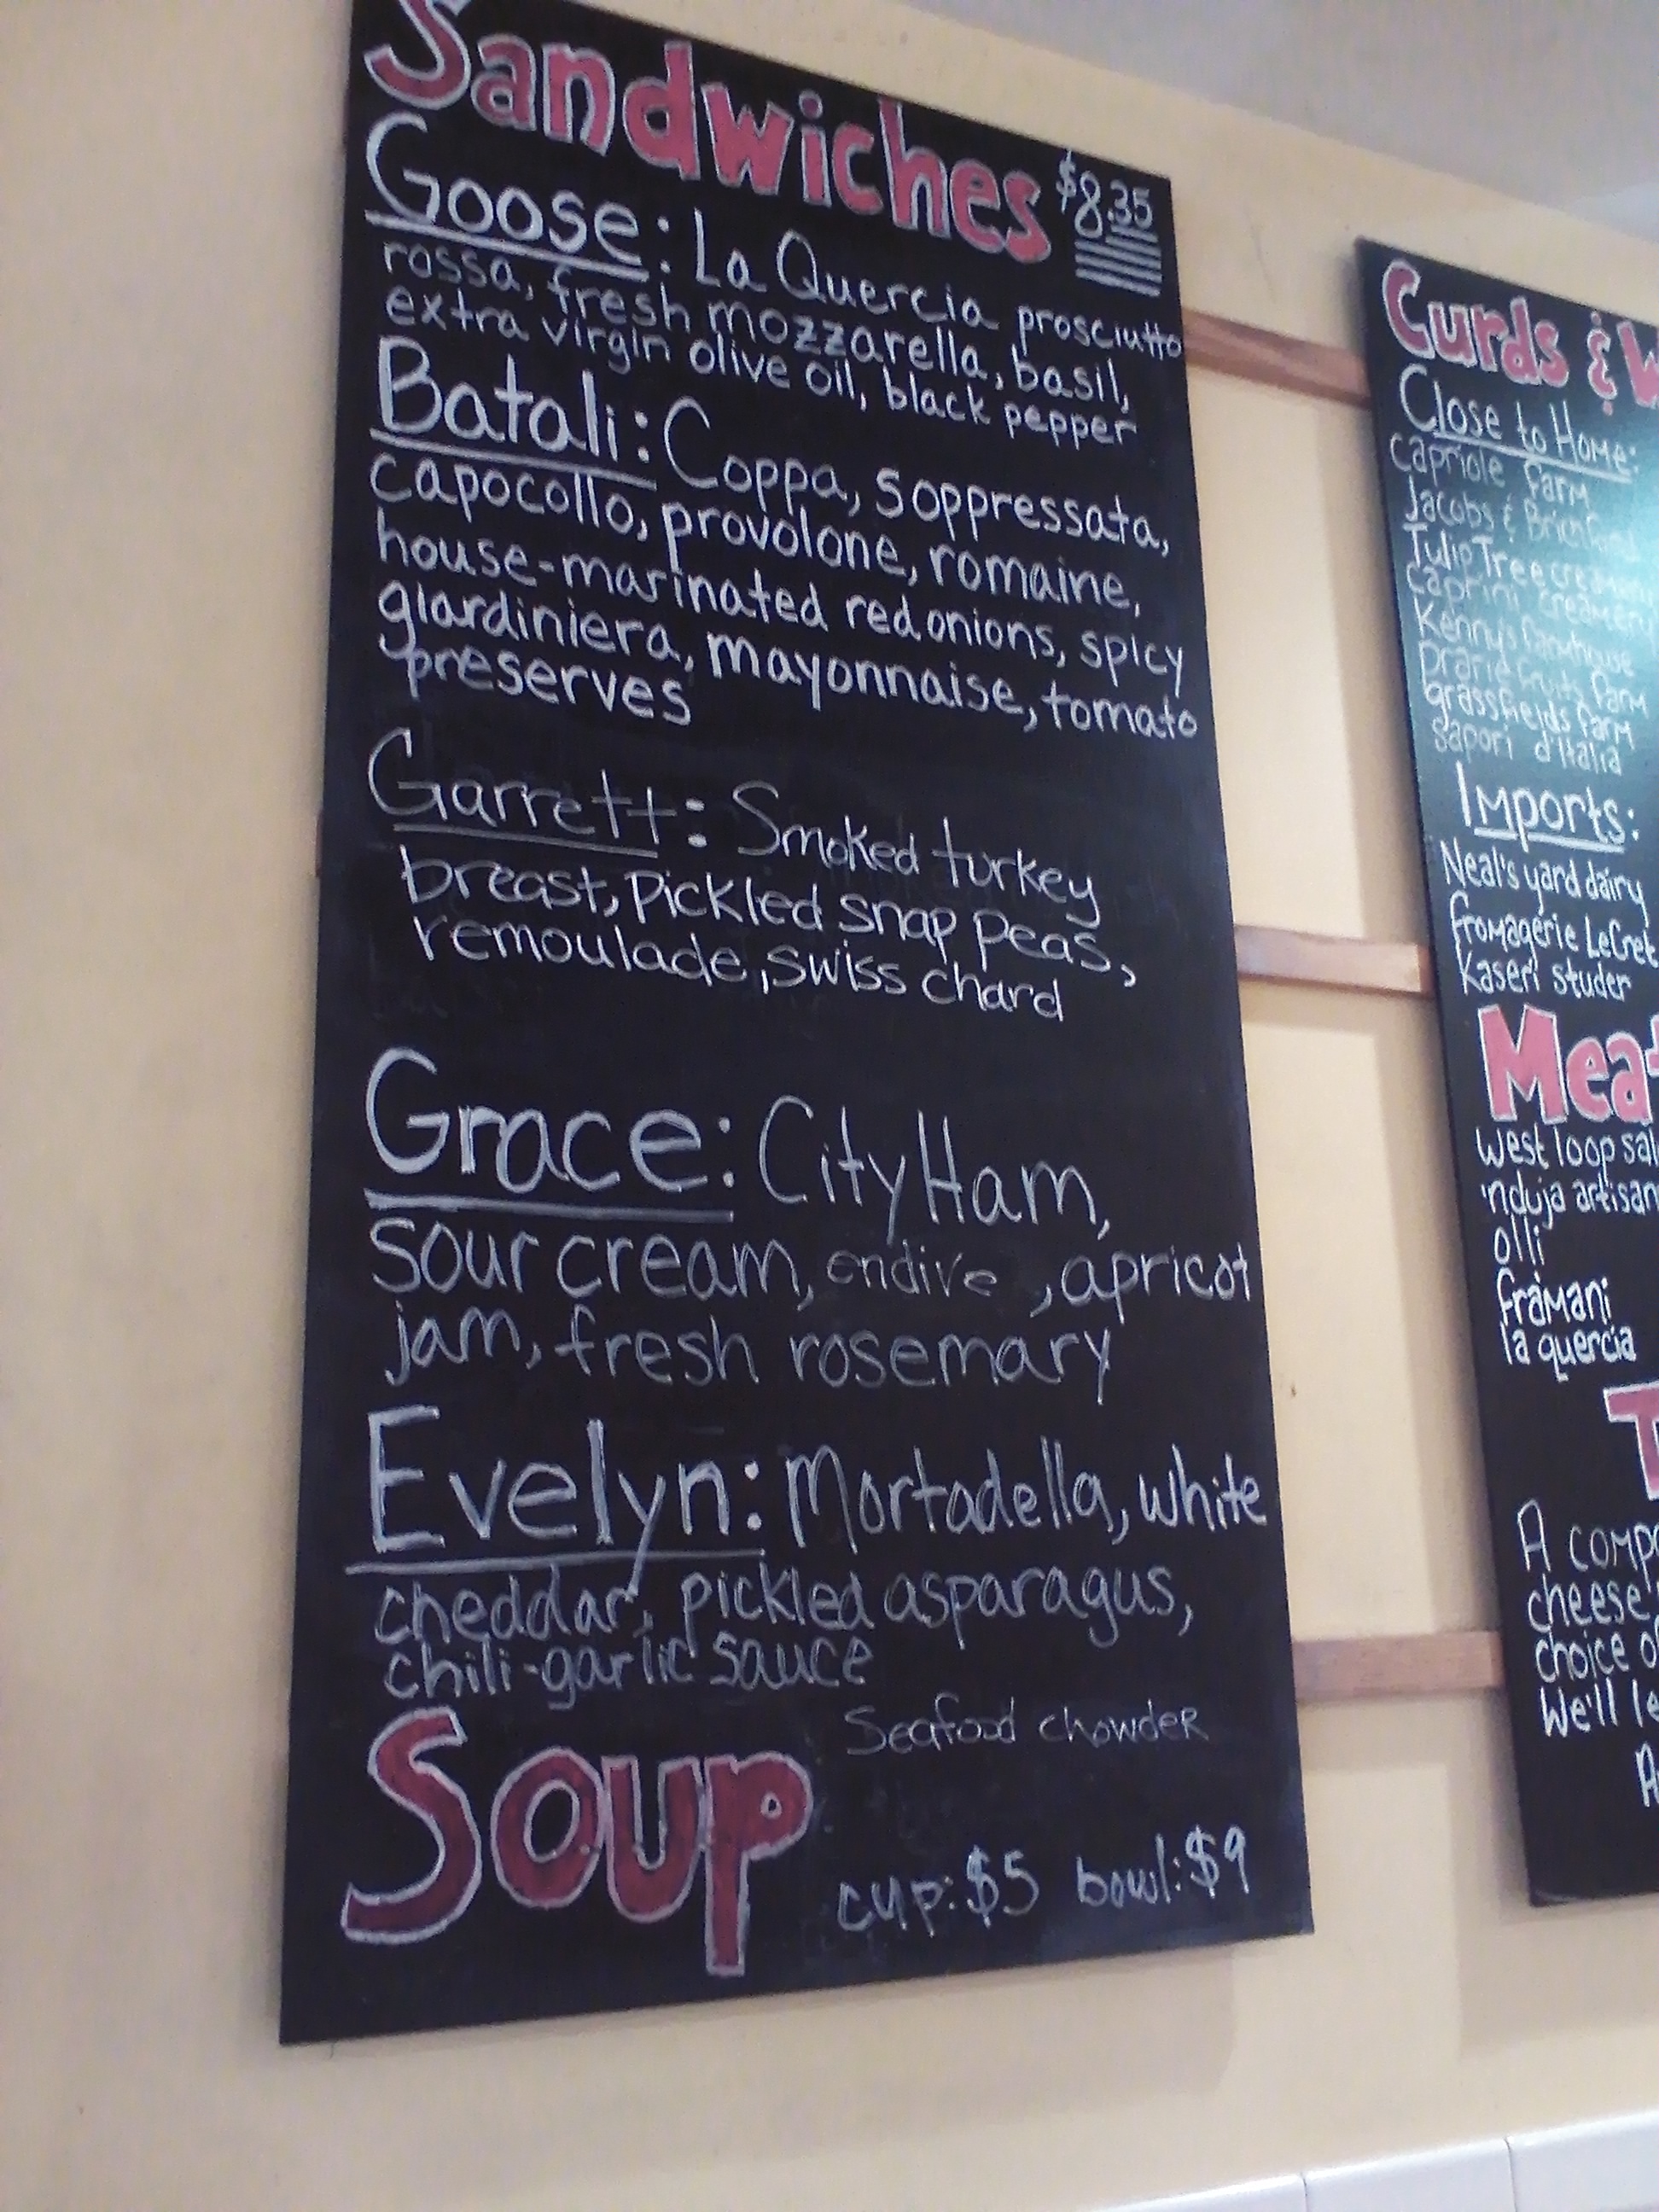 Sandwiches $8.35
Goose: La Quercia prosciutto
rossa, fresh mozzarella, basil,
extra virgin olive oil, black pepper
Batali: Coppa, soppressata,
capocollo, provolone, romaine,
house-marinated red onions, spicy
giardiniera, mayonnaise, tomato
preserves
Garrett: Smoked turkey
breast, Pickled snap peas,
remoulade, swiss chard
Grace: City Ham,
sour cream, endive, apricot
jam, fresh rosemary
Evelyn: Mortadella, white
cheddar, pickled asparagus,
chili-garlic sauce
Seafood chowder
Soup
cup: $5 bowl: $9
Curds & W
Close to Home:
capriole farm
Jacobs &
Tulip Tree creamery
caprini creamery
Kenny's farmhouse
prarie fruits farm
grassfields farm
sapori d'Italia
Imports:
Neal's yard dairy
fromagerie LeCret
kaseri studer
Meat
west loop sal
'nduja artisan
olli
framani
la quercia
T
A comp
cheese
choice o
We'll le